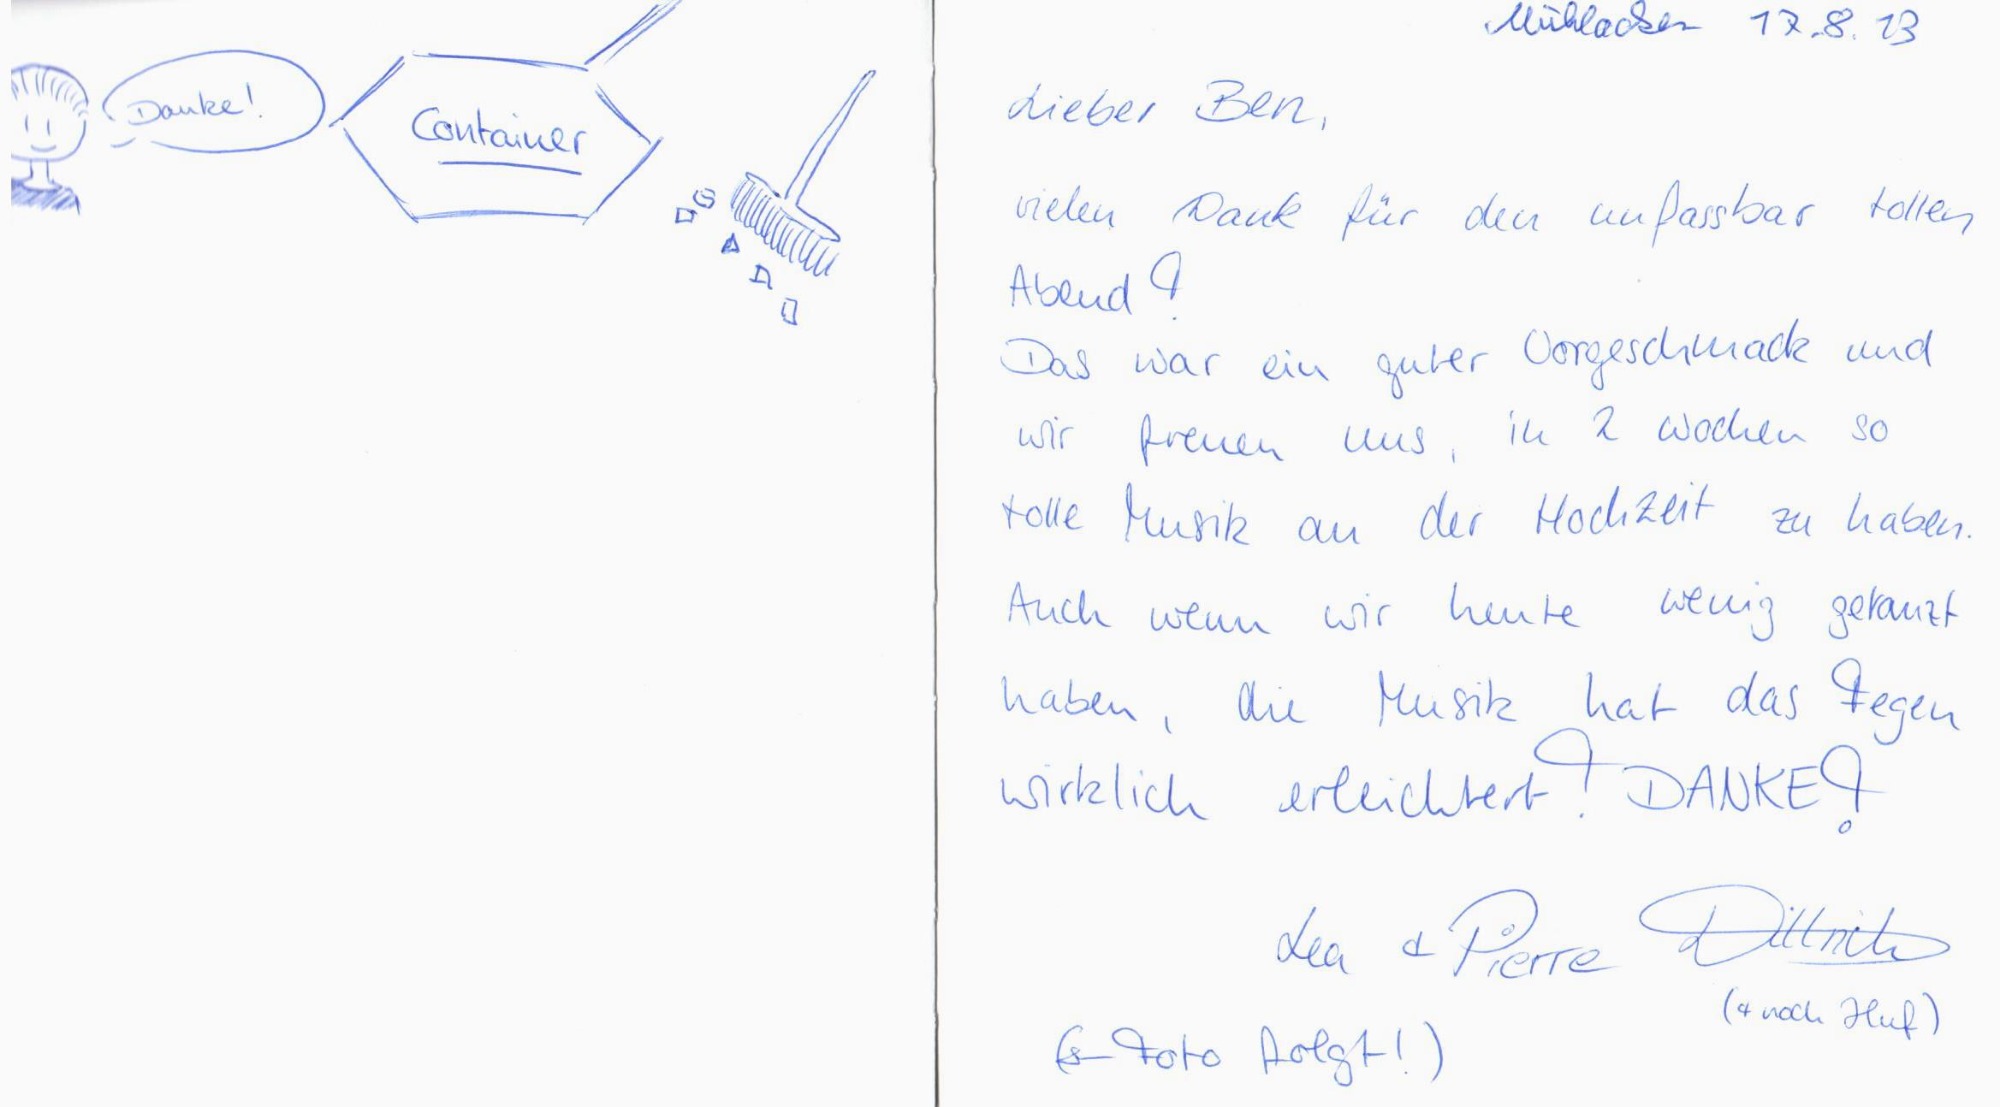 Danke!
Container
Mühlacker 17.8.13
Lieber Ben,
vielen Dank für den unfassbar tollen
Abend!
Das war ein guter Vorgeschmack und
wir freuen uns, in 2 Wochen so
tolle Musik an der Hochzeit zu haben.
Auch wenn wir heute wenig getanzt
haben, die Musik hat das Fegen
wirklich erleichtert! DANKE!
Lea & Pierre Dittrich
(& noch Huf)
(← Foto folgt!)